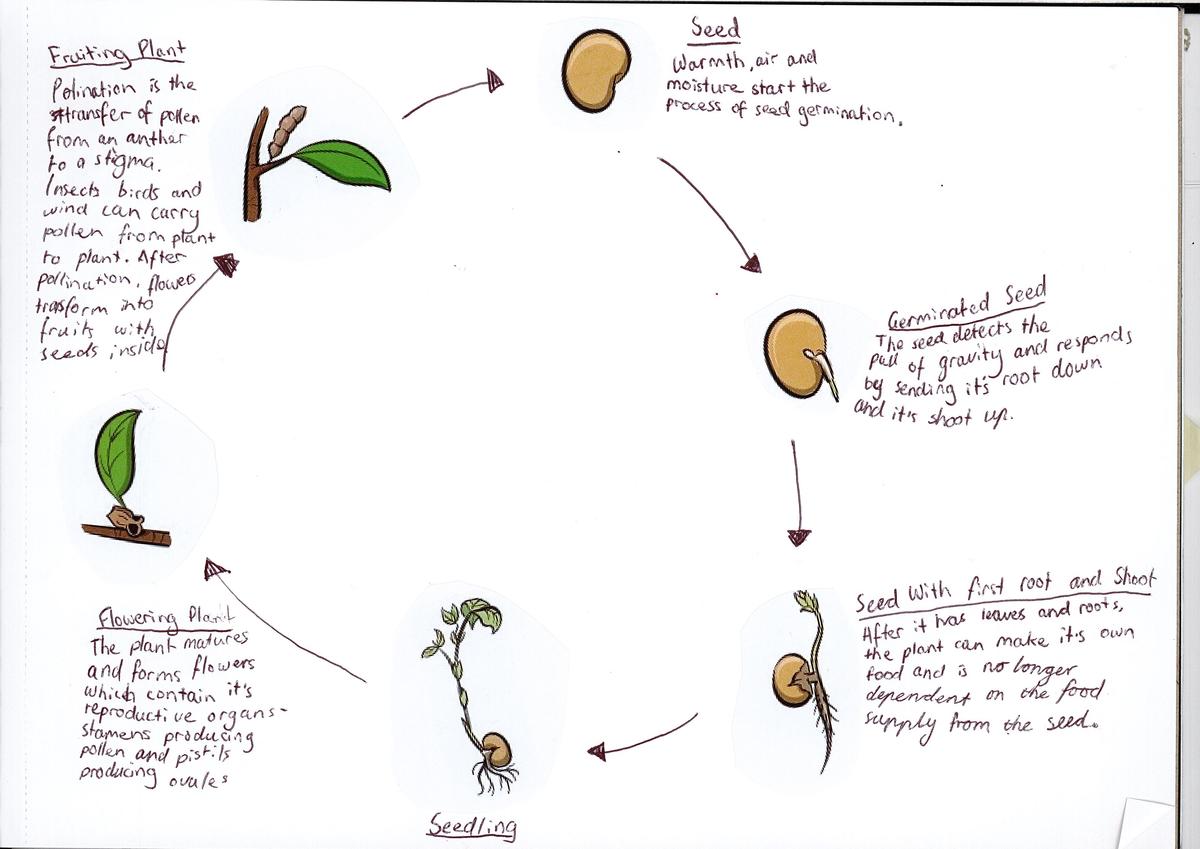 Seed
Warmth, air and
moisture start the
process of seed germination.
Germinated Seed
The seed detects the
pull of gravity and responds
by sending it's root down
and it's shoot up.
Seed With first root and Shoot
After it has leaves and roots,
the plant can make it's own
food and is no longer
dependent on the food
supply from the seed.
Seedling
Flowering Plant
The plant matures
and forms flowers
which contain it's
reproductive organs-
stamens producing
pollen and pistils
producing ovules
Fruiting Plant
Polination is the
transfer of pollen
from an anther
to a stigma.
Insects birds and
wind can carry
pollen from plant
to plant. After
pollination, flowers
transform into
fruits with
seeds inside